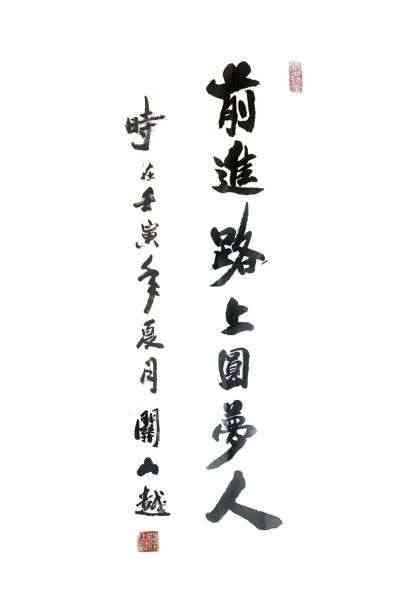 前進路上圓夢人
時在壬寅年夏月關山越